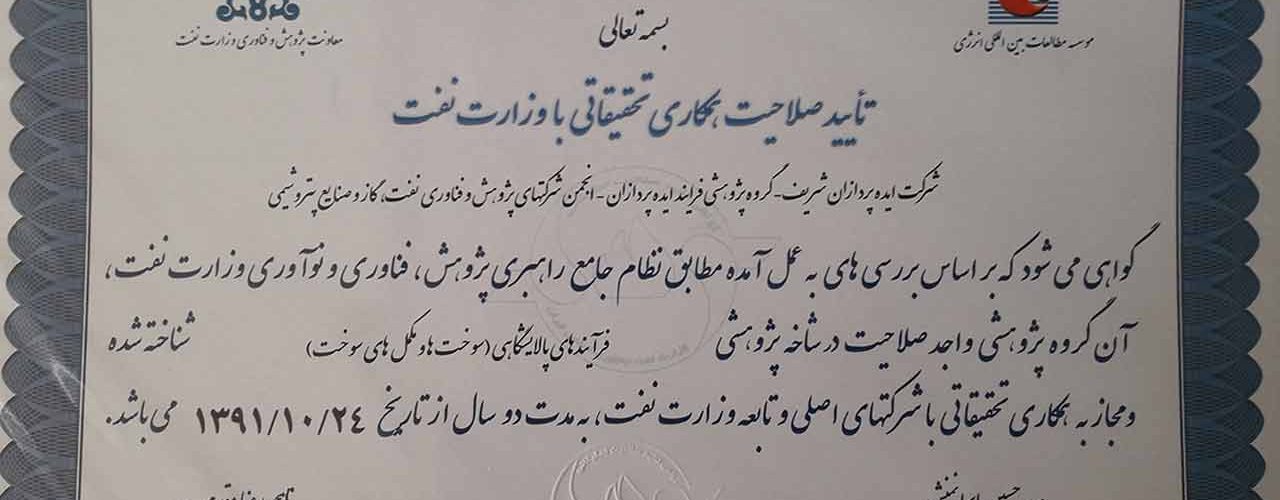 موسسه مطالعات بین المللی انرژی
بسمه تعالی
معاونت پژوهش و فناوری وزارت نفت
تأیید صلاحیت همکاری تحقیقاتی با وزارت نفت
شرکت ایده پردازان شریف - گروه پژوهشی فرایند ایده پردازان - انجمن شرکتهای پژوهش و فناوری نفت، گاز و صنایع پتروشیمی
گواهی می شود که بر اساس بررسی های به عمل آمده مطابق نظام جامع راهبری پژوهش، فناوری و نوآوری وزارت نفت،
آن گروه پژوهشی واجد صلاحیت در شاخه پژوهشی فرآیندهای پالایشگاهی (سوخت ها و مکمل های سوخت) شناخته شده
و مجاز به همکاری تحقیقاتی با شرکتهای اصلی و تابعه وزارت نفت، به مدت دو سال از تاریخ ۱۳۹۱/۱۰/۲۴ می باشد.